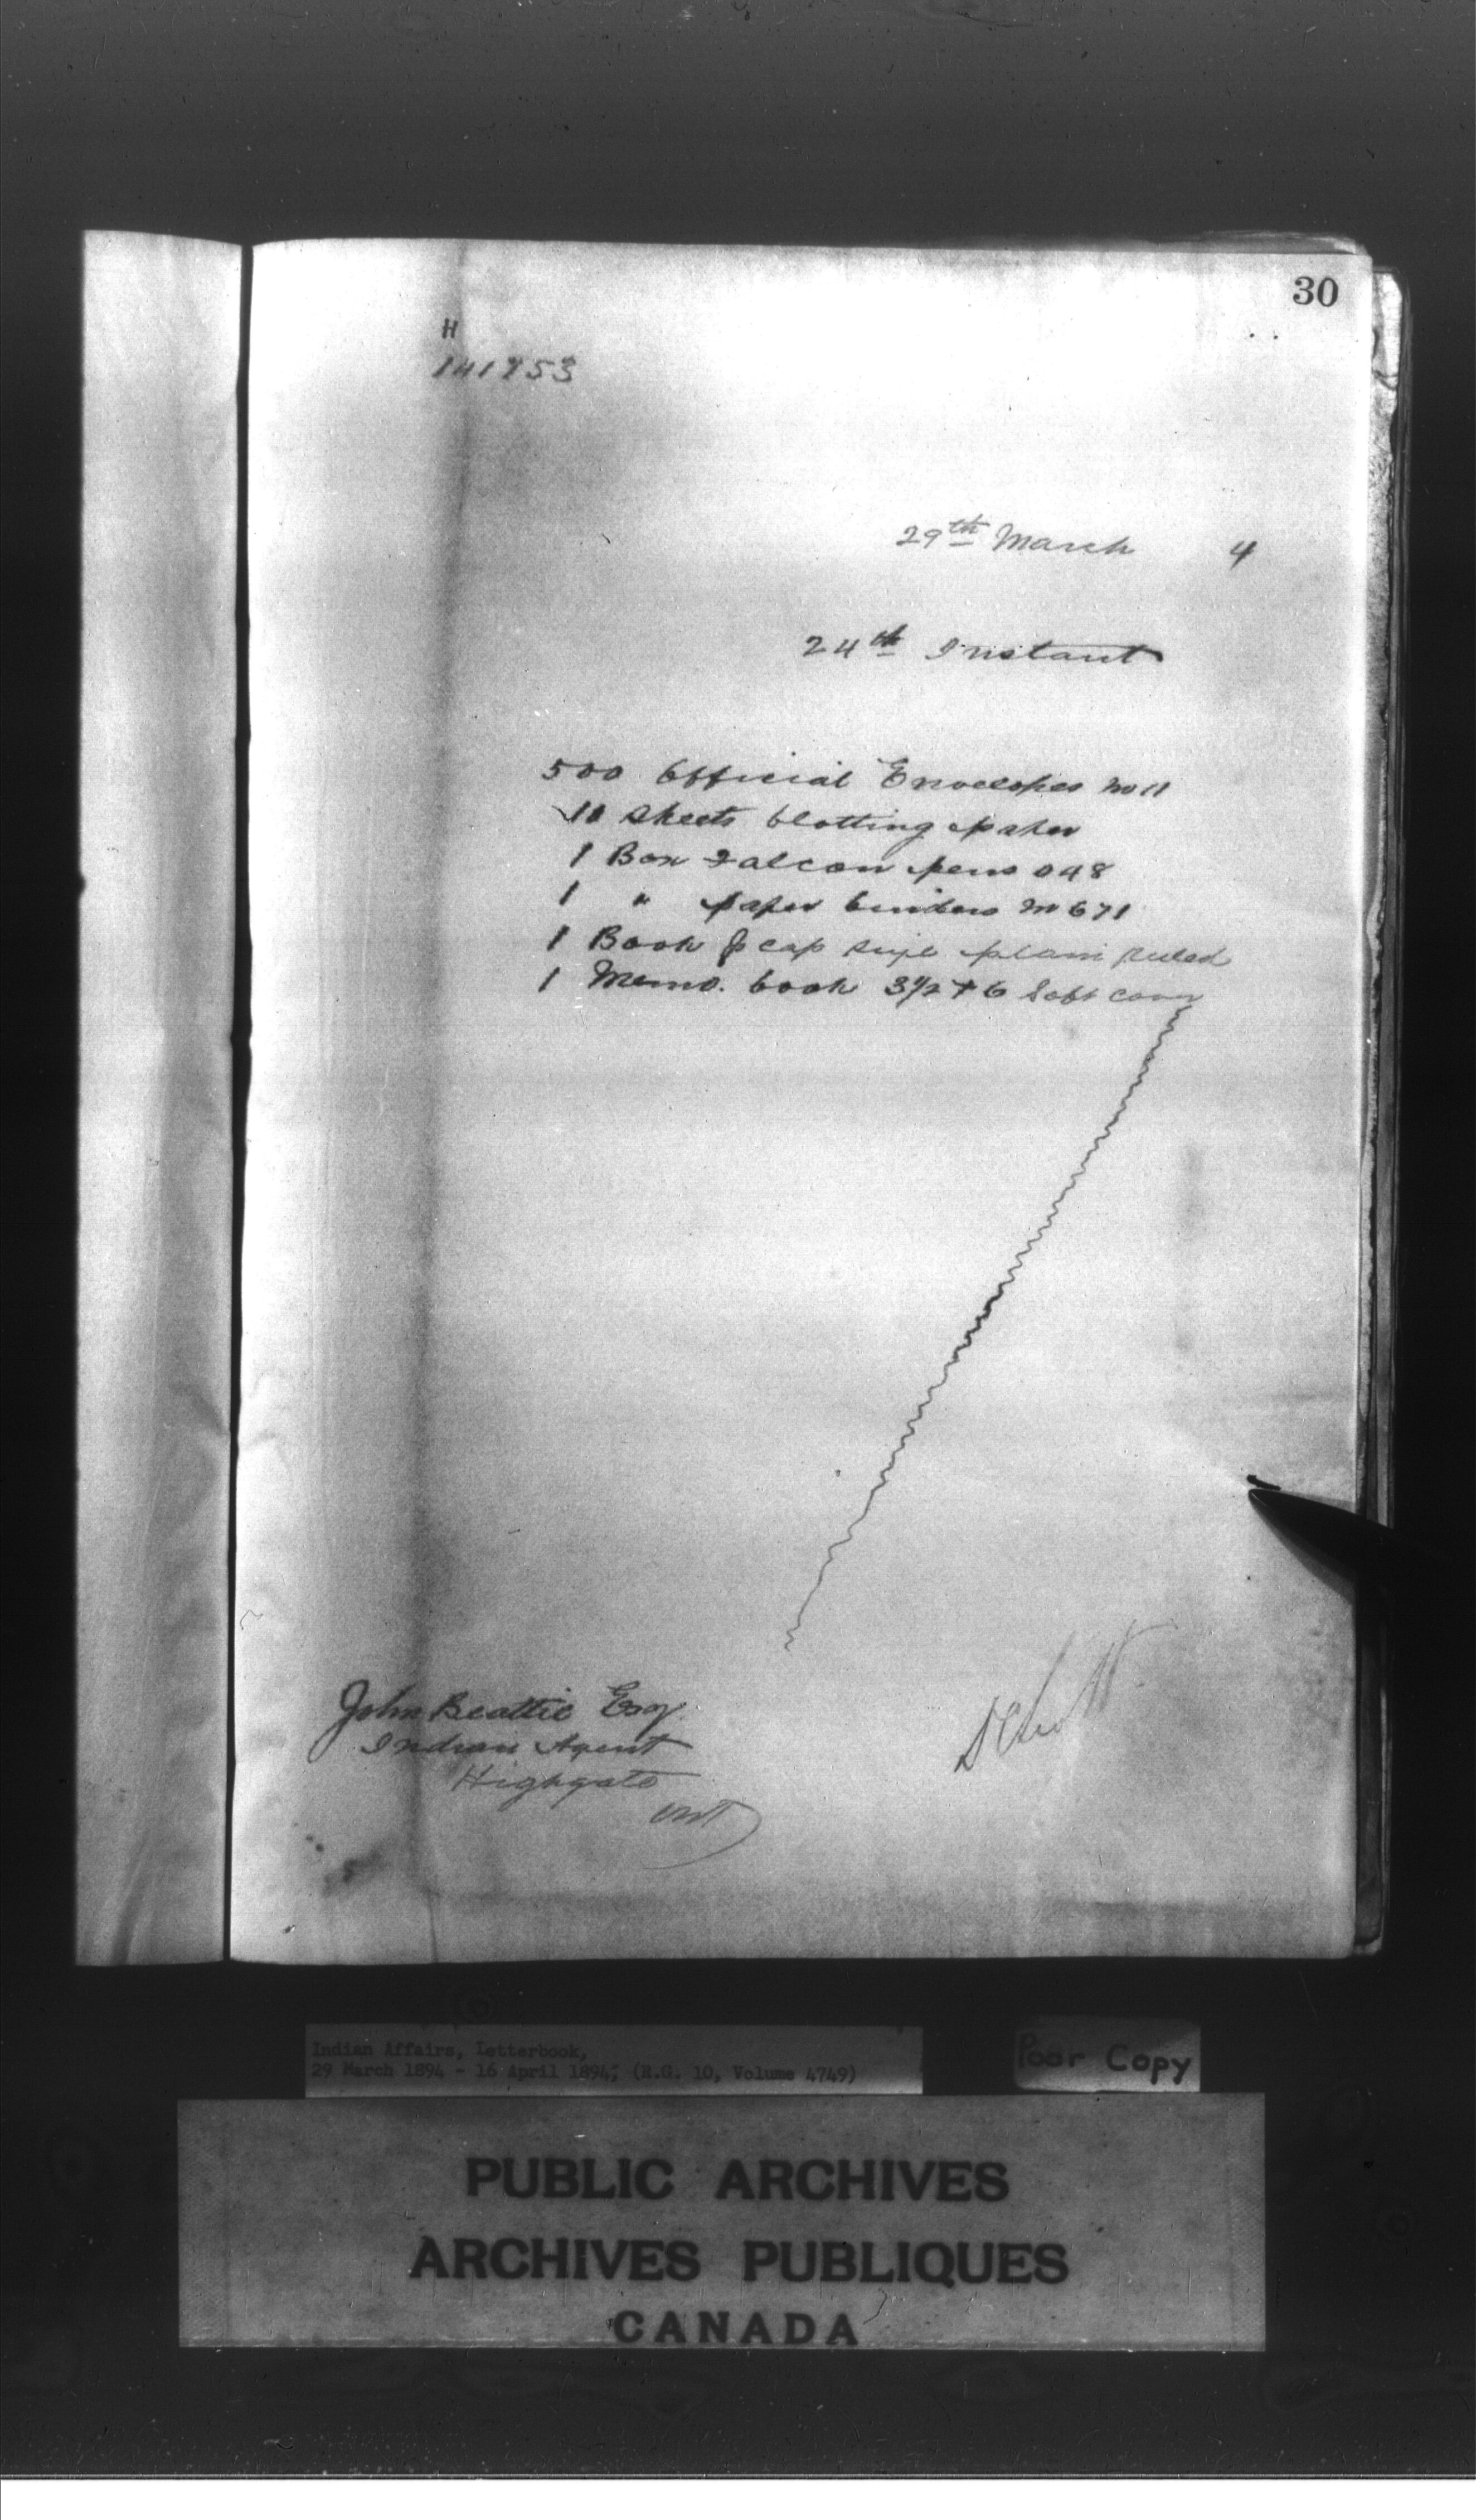 30
H
141753
29th March 4
24th Instant
500 Official Envelopes No 11
10 Sheets blotting paper
1 Box Falcon pens 048
1 " paper binders No 671
1 Book F cap size plain ruled
1 Memo. book 3 1/2 + 6 Soft cover
John Beattie Esq.
Indian Agent
Highgate
Ont
D C Scott
Indian Affairs, Letterbook,
29 March 1894 - 16 April 1894; (R.G. 10, Volume 4749)
Poor Copy
PUBLIC ARCHIVES
ARCHIVES PUBLIQUES
CANADA